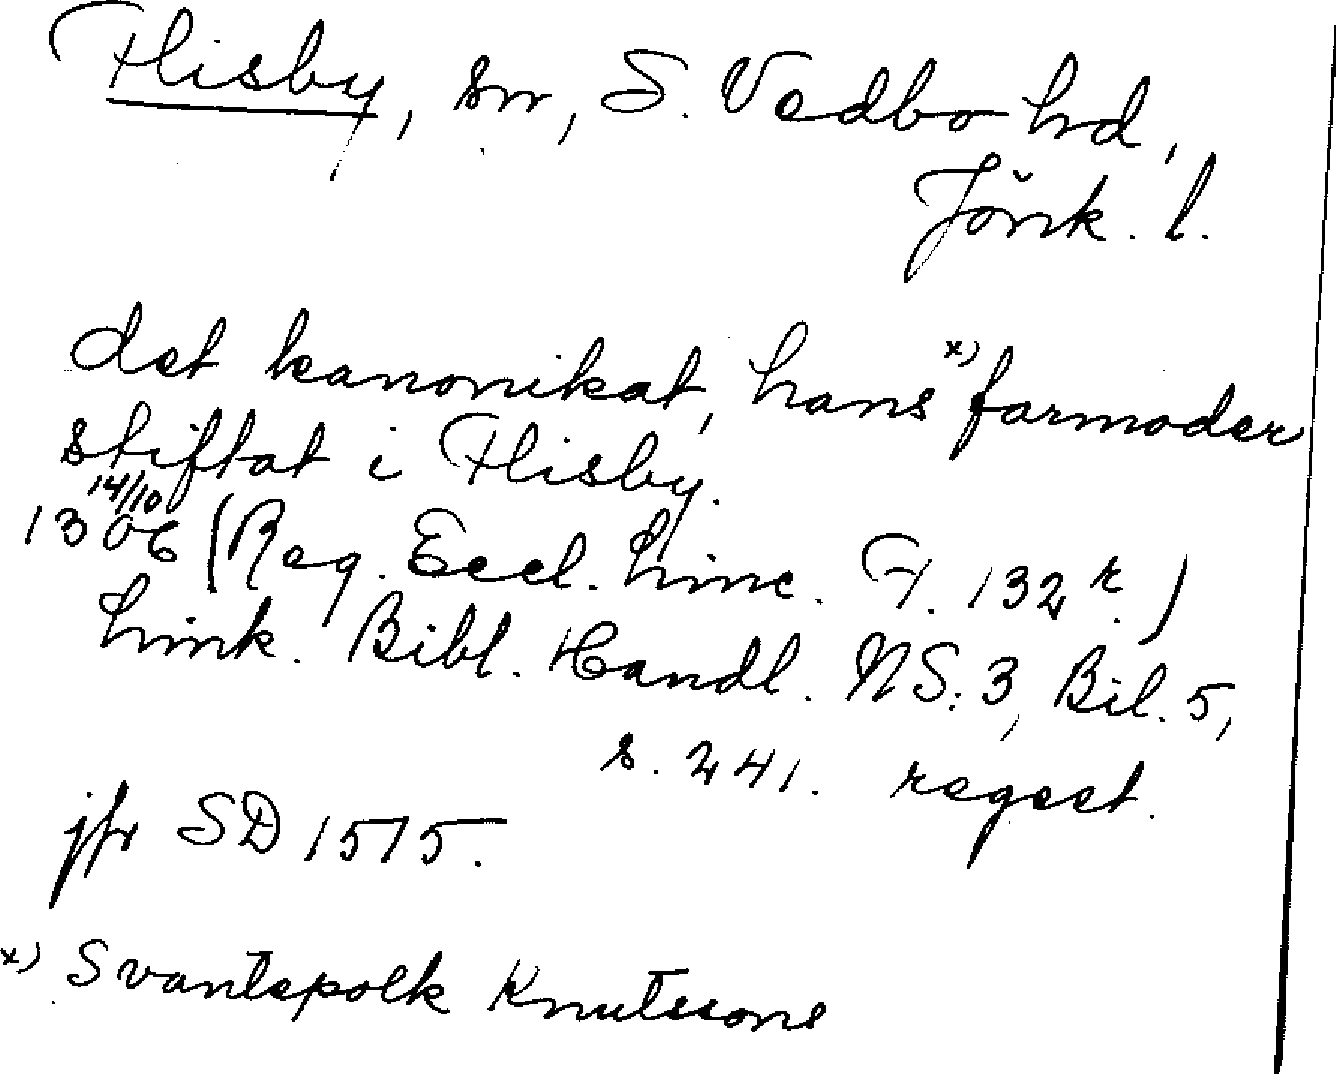 Flisby, sn, S. Vedbo hd,
Jönk. l.
det kanonikat, hans x) farmoder
stiftat i Flisby.
14/10
1306 (Reg. Eccl. Linc. F. 132 r.)
Link. Bibl. Handl. NS: 3, Bil. 5,
s. 241. regest.
jfr SD 1515.
x) Svantepolk Knutssons